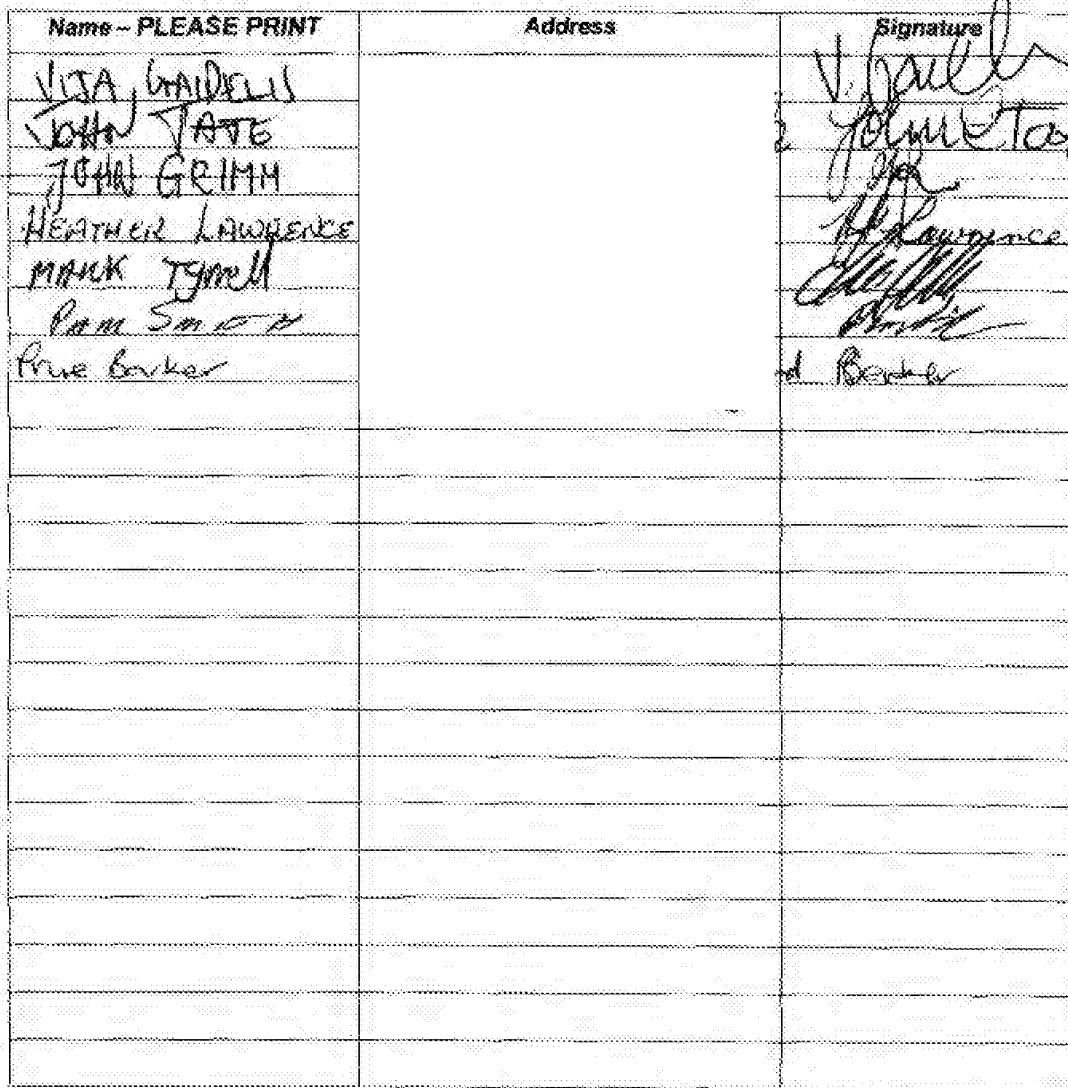 Name – PLEASE PRINT Address Signature
VIJA GAIDELIS V. Gaidelis
JOHN TATE
JOHN GRIMM
HEATHER LAWRENCE H Lawrence
MARK Tyrrell
Pam Smith
Prue Barker d Barker